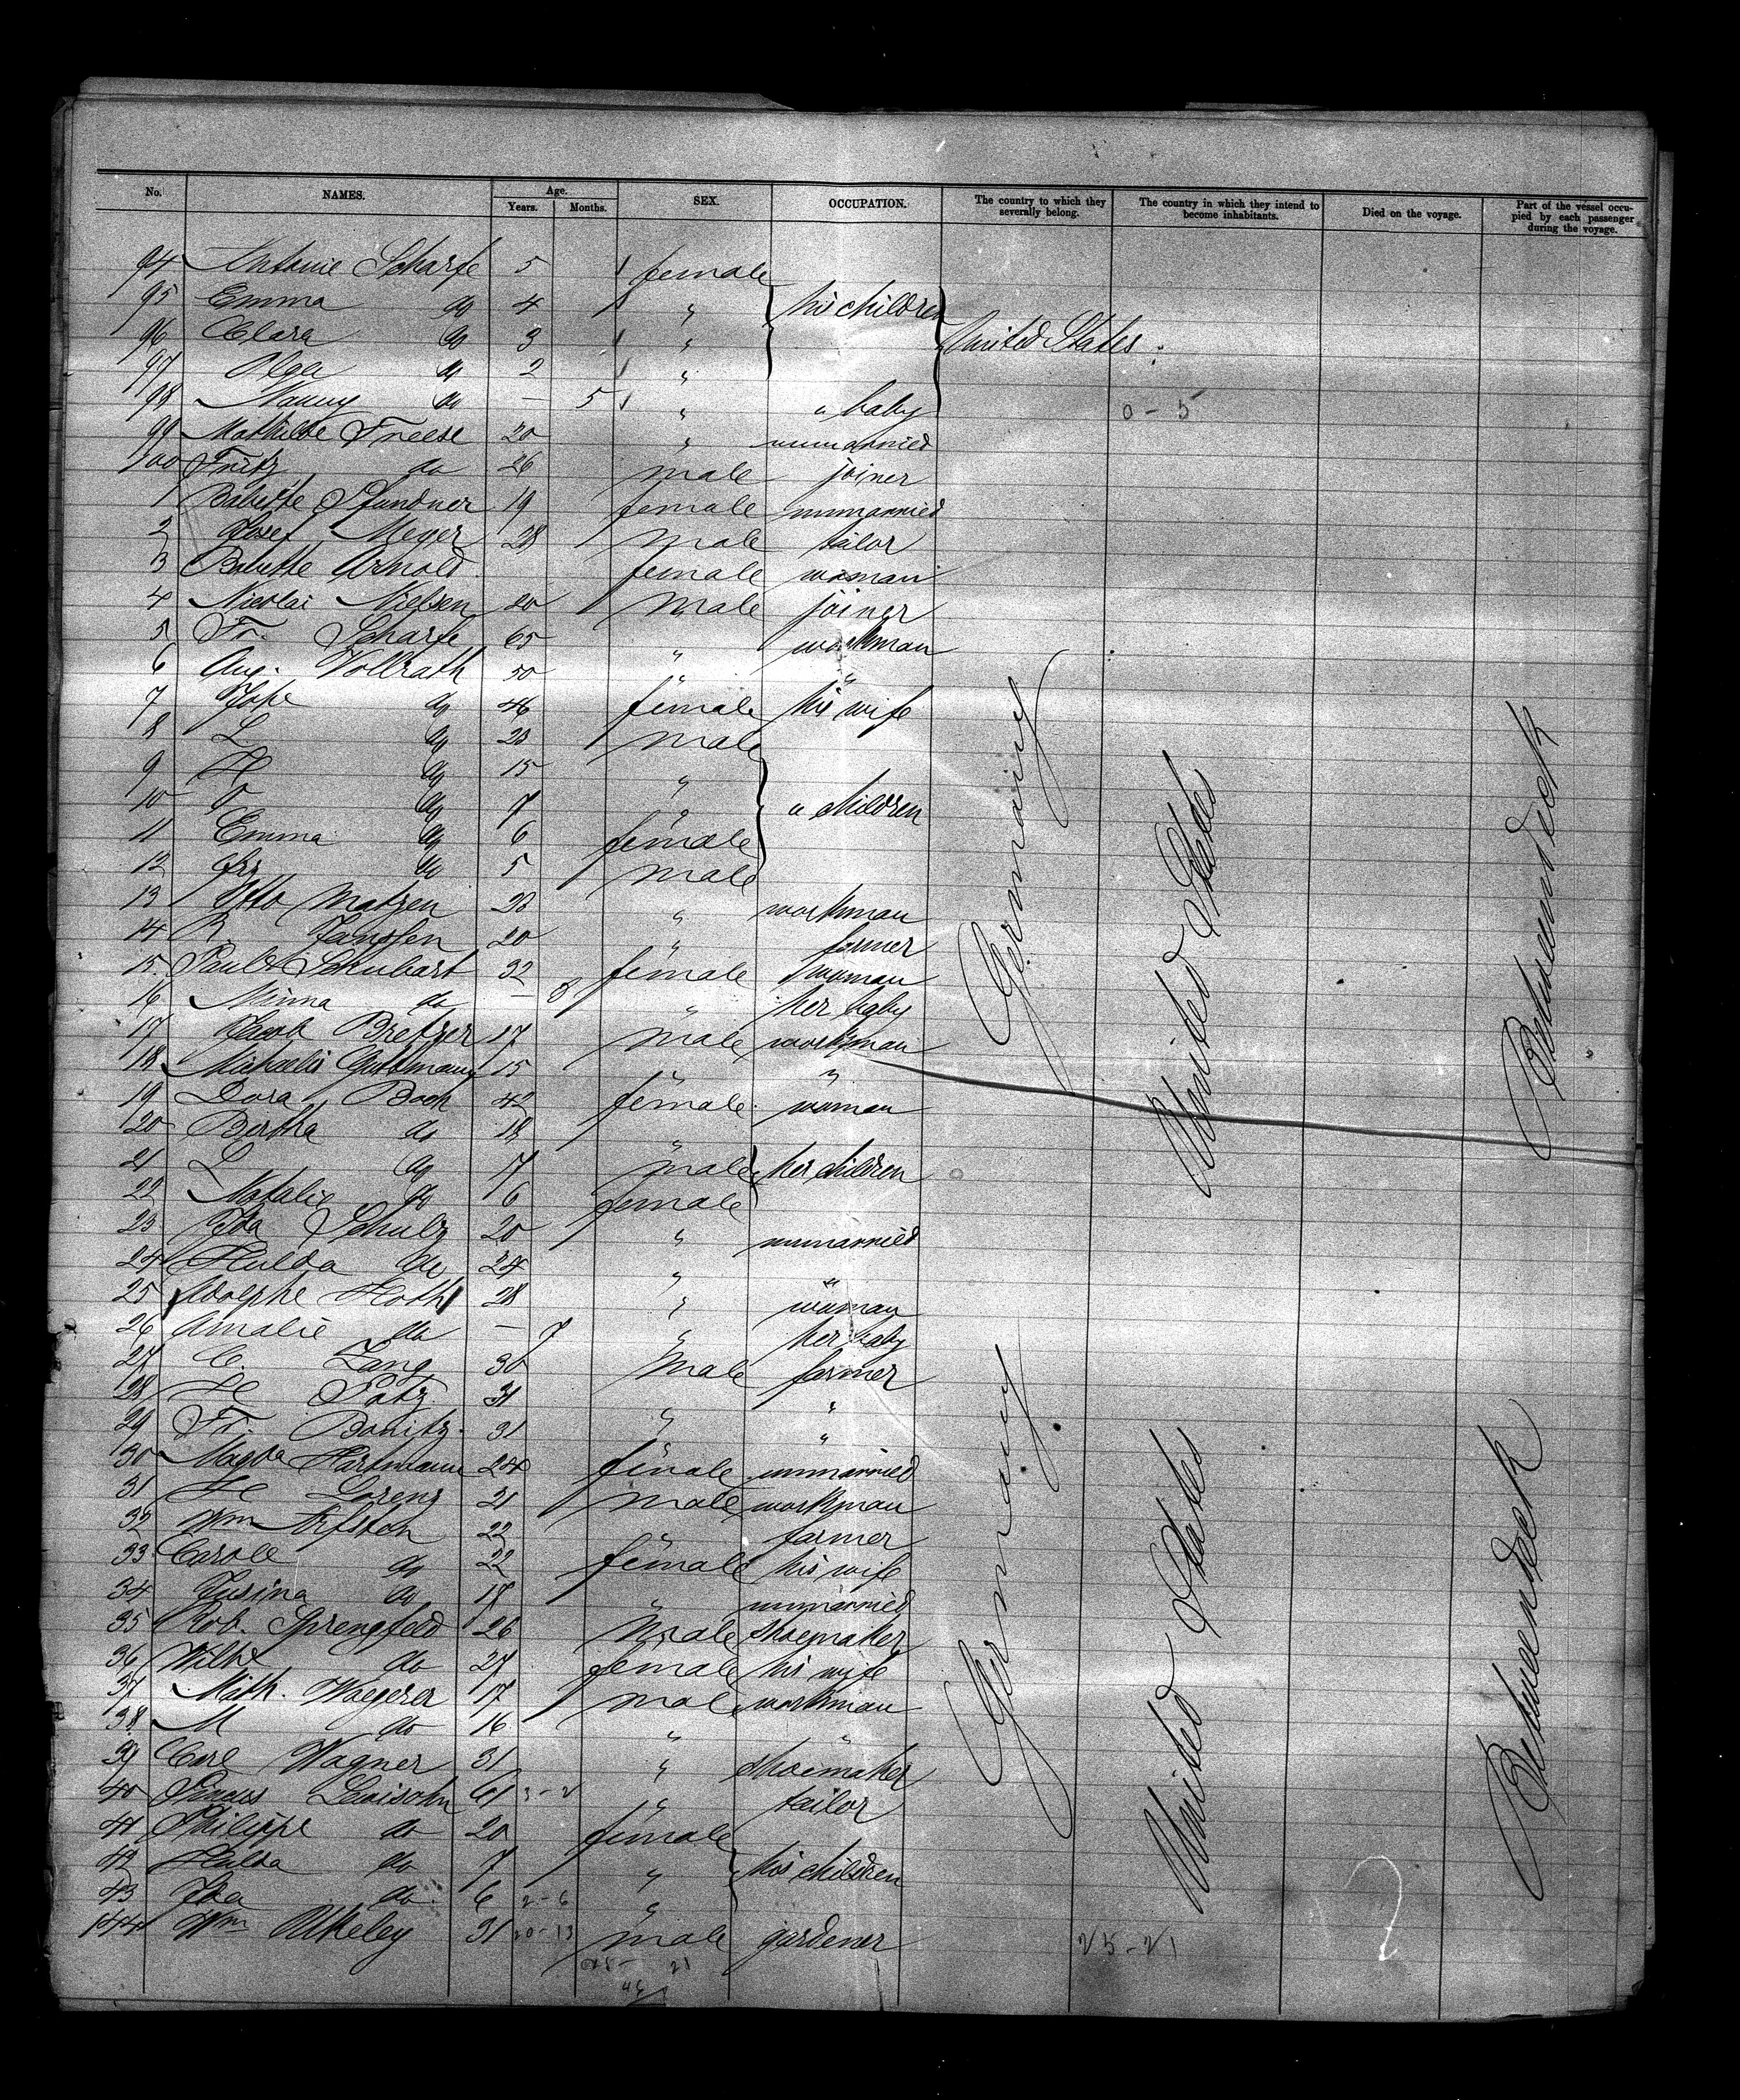 No. NAMES. Age. Years. Months. SEX. OCCUPATION. The country to which they severally belong. The country in which they intend to become inhabitants. Died on the voyage. Part of the vessel occupied by each passenger during the voyage.
94 Antonie Scharfe 5 female
95 Emma do 4 " his children
96 Clara do 3 " United States
97 Olga do 2 "
98 Nanny do — 5 " " baby 0-5
99 Mathilde Freese 20 " unmarried
100 Fritz do 26 male joiner
1 Babette Pfundner 19 female unmarried
2 Josef Meyer 28 male tailor
3 Babette Arnold female woman
4 Nicolai Nielsen 20 male joiner
5 Fr. Scharfe 65 " workman
6 Aug. Vollrath 50 " "
7 do 46 female his wife
8 L do 23 male
9 H do 15 "
10 do 7 " " children
11 Emma do 6 female
12 do 5 male
13 Otto Matzen 23 " workman
14 R. Janssen 20 " farmer
15 Schubart 32 female woman
16 Minna do — 8 " her baby
17 Jacob Bretzer 17 male workman
18 Michaelis Guttmann 15 " "
19 Dora Bock 42 female woman
20 Bertha do 18 "
21 L do 7 male her children
22 Natalie do 6 female
23 Ida Schulz 20 " unmarried
24 Hulda do 24 " "
25 Adolphe Hoth 28 " woman
26 Amalie do — 7 " her baby
27 C. Lang 30 male farmer
28 H Potz 31 " "
29 Fr. Bonitz 31 " "
30 Magda Hartmann 24 female unmarried
31 H Lorenz 21 male workman
32 Wm 22 farmer
33 Carole do 22 female his wife
34 do 17 " unmarried
35 Rob. Sprengfeld 26 male shoemaker
36 Wilhe do 27 female his wife
37 Math. Waegerer 17 male workman
38 M do 16 " "
39 Carl Wagner 31 " shoemaker
40 Levisohn 61 " tailor
41 Philippe do 20 female
42 Hulda do 7 " his children
43 Ida do 6 2-6 "
144 Wm Ukeley 31 male gardener 25-21
Germany
United States
Betweendeck
Germany
United States
Betweendeck